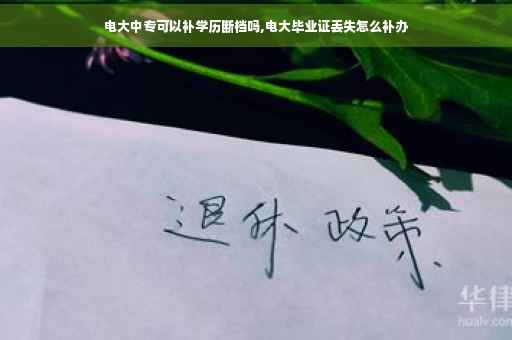 电大中专可以补学历断档吗,电大毕业证丢失怎么补办
退休 政策
华律
hualv.com